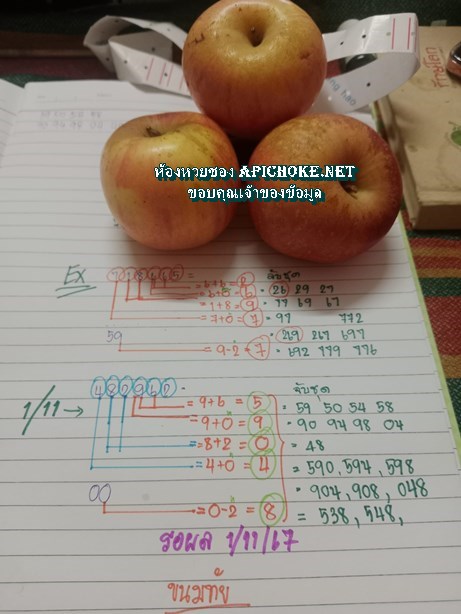 ห้องหวยซอง APICHOKE.NET
ขอบคุณเจ้าของข้อมูล
EX
จับชุด
= 1+8 = 9 • 77 69 67
= 7+0 = 7 • 97 772
59
• 269 267 697
= 9-2 = 7 • 692 779 776
จับชุด
1/11 →
= 9+6 = 5 = 59 50 54 58
= 9+0 = 9 = 90 94 98 04
= 8+2 = 0 = 48
= 4+0 = 4 = 590, 594, 598
= 904, 908, 048
00
= 0-2 = 8 = 538, 548,
รอผล 1/11/67
ขนมทัย